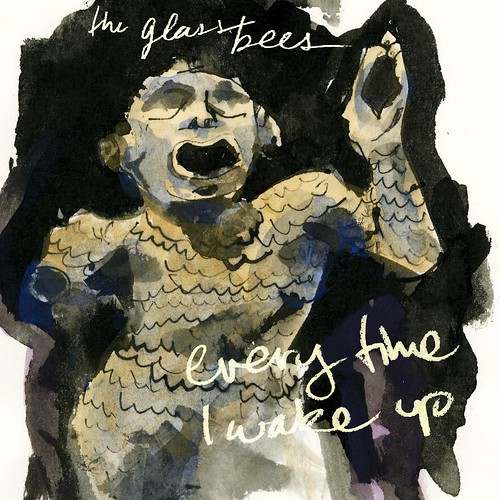 the glass bees
every time
I wake up